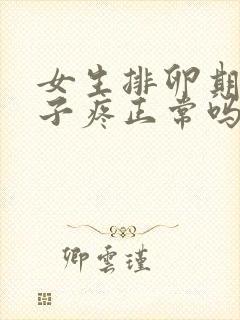 女生排卵期
子疼正常吗
卿雲瑾